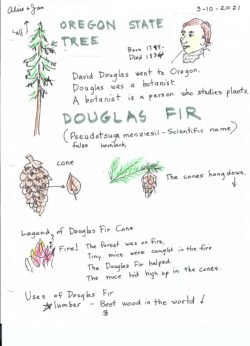 Alice + Jan
3-10-2021
Tall
OREGON STATE
TREE
Born 1799-
Died 1834
David Douglas went to Oregon.
Douglas was a botanist.
A botanist is a person who studies plants.
DOUGLAS FIR
(Pseudotsuga menziesii - Scientific name)
false hemlock
cone
The cones hang down.
Legend of Douglas Fir Cone
Fire! The forest was on fire.
Tiny mice were caught in the fire
The Douglas Fir helped.
The mice hid high up in the cones.
Uses of Douglas Fir
lumber - Best wood in the world!
$